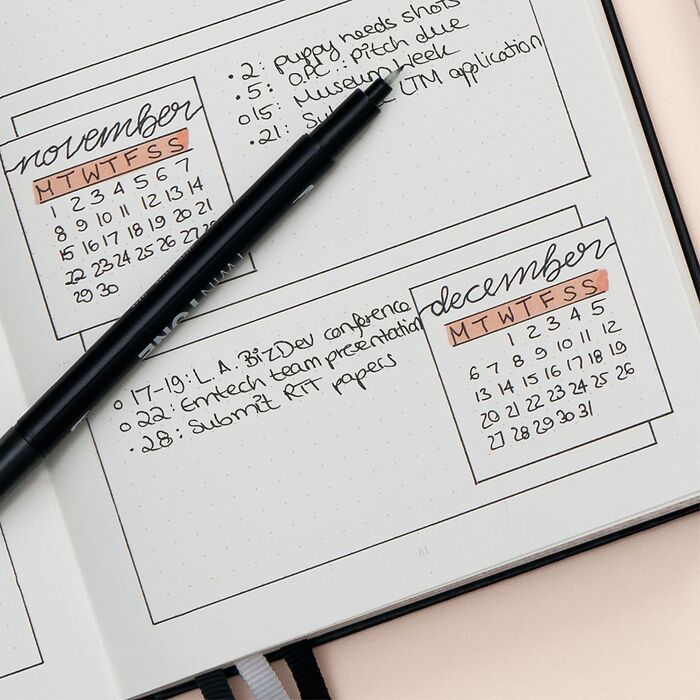 • 2: puppy needs shots
• 5: O.P.C. : pitch due
o 15: Museum Week
• 21: LTM application
november
M T W T F S S
1 2 3 4 5 6 7
8 9 10 11 12 13 14
15 16 17 18 19 20 21
22 23 24 25 26 27
29 30
TWINTONE
o 17-19: L.A. BizDev conference
o 22: Emtech team presentation
• 28: Submit RIT papers
december
M T W T F S S
1 2 3 4 5
6 7 8 9 10 11 12
13 14 15 16 17 18 19
20 21 22 23 24 25 26
27 28 29 30 31
61